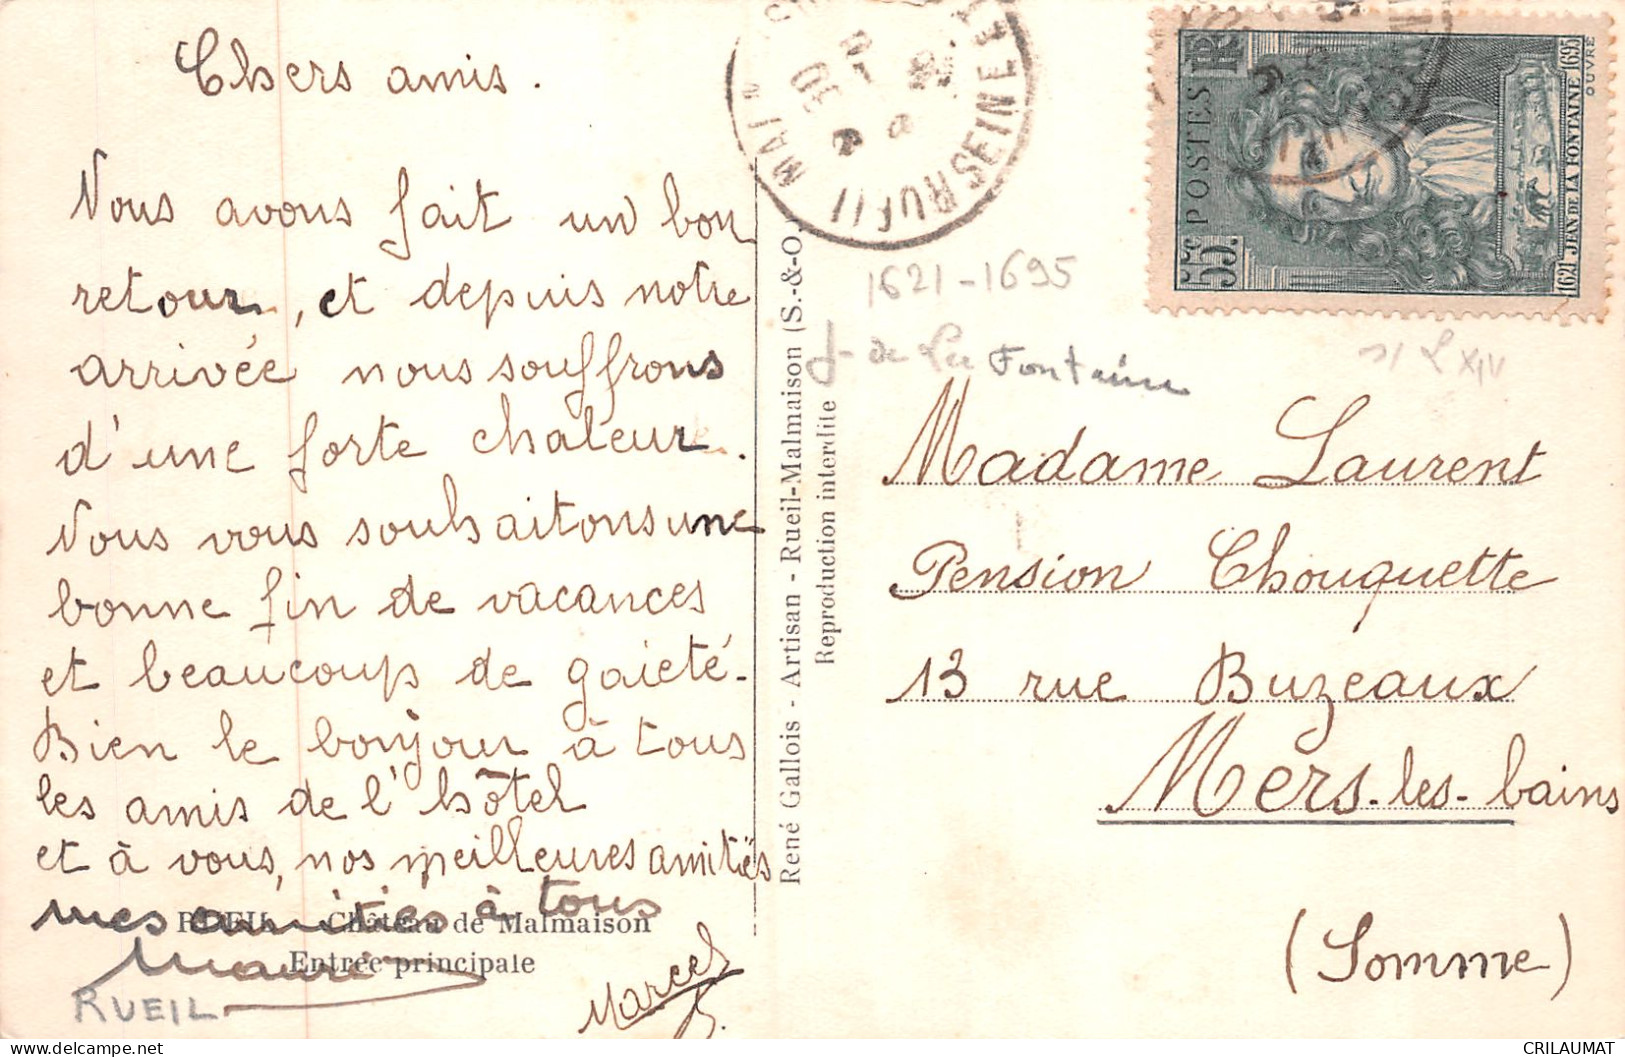 Chers amis.
Nous avons fait un bon
retour, et depuis notre
arrivée nous souffrons
d'une forte chaleur.
Nous vous souhaitons une
bonne fin de vacances
et beaucoup de gaieté.
Bien le bonjour à tous
les amis de l'hôtel
et à vous, nos meilleures amitiés
mes amitiés à tous
RUEIL - Château de Malmaison
Entrée principale
RUEIL
Marcel
René Gallois - Artisan - Rueil-Malmaison (S.-&-O.
Reproduction interdite
SEINE
POSTES RF
55c
1621 JEAN DE LA FONTAINE 1695
OUVRÉ
1621-1695
J- de La Fontaine
s/ L XIV
Madame Laurent
Pension Chouquette
13 rue Buzeaux
Mers-les-bains
(Somme)
delcampe.net
CRILAUMAT